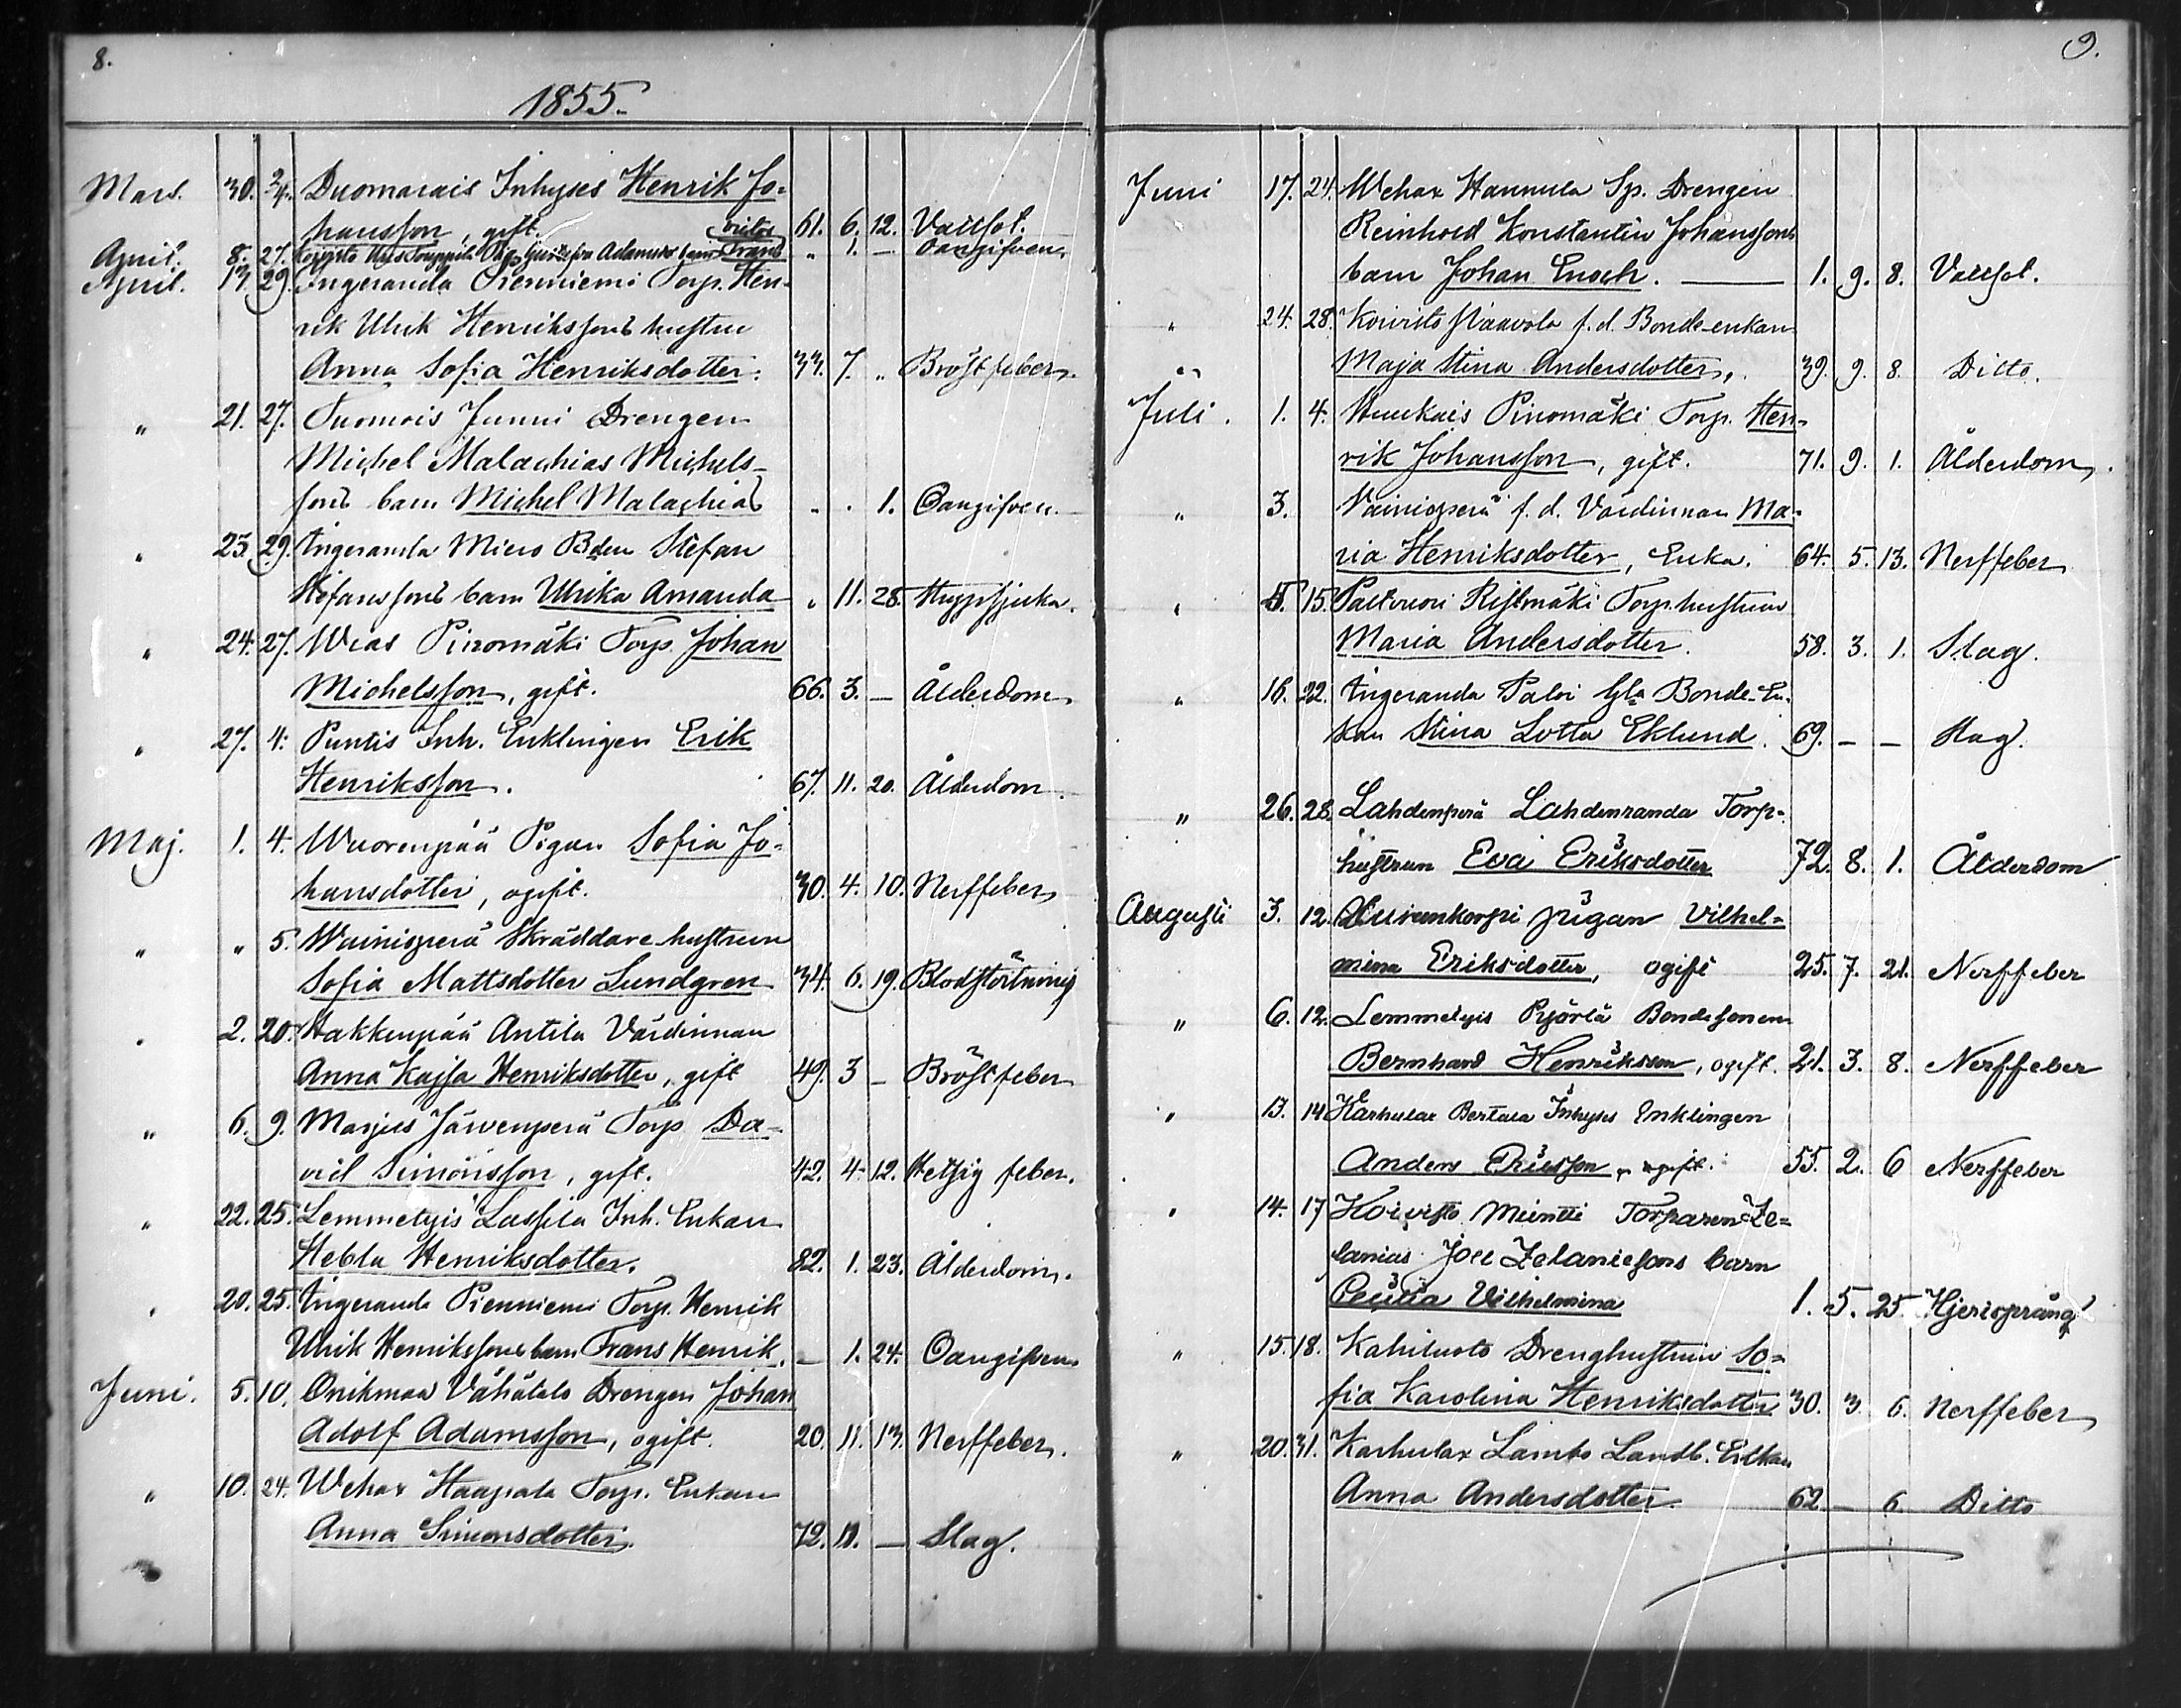 8.
1855.
Mars. 30. 2/4. Duomarais Inhyses Henrik Jo-
hansson, gift. 61. 6. 12. Vattsot.
April. 8. 27. Adams barn Frans " 1. — Oangifven.
April. 13. 29. Tingeranda Pienniemi Torp. Hen-
rik Ulrik Henrikssons hustru
Anna Sofia Henriksdotter. 33. 7. " Bröstfeber.
" 21. 27. Tuomois Junni Drengen
Michel Malachias Michels-
sons barn Michel Malachias " . 1. Oangifven.
" 23. 29. Tingeranda Miero Bden Stefan
Stefanssons barn Ulrika Amanda " 11. 28. Strypsjuka.
" 24. 27. Wias Pinomäki Torp. Johan
Michelsson, gift. 66. 3. — Ålderdom.
" 27. 4. Puntis Inh. Enklingen Erik
Henriksson. 67. 11. 20. Ålderdom.
Maj. 1. 4. Wuorenpää Pigan Sofia Jo-
hansdotter, ogift. 30. 4. 10. Nerffeber
" " 5. Wainioperä Skräddare hustrun
Sofia Mattsdotter Lundgren 34. 6. 19. Blodstörtning
" 2. 20. Hakkenpää Antila Värdinnan
Anna Kajsa Henriksdotter, gift 49. 3 — Bröstfeber
" 6. 9. Marjus Järvenperä Torp Da-
vid Simonsson, gift. 42. 4. 12. Hetsig feber.
" 22. 25. Lemmetyis Lassila Inh. Enkan
Hebla Henriksdotter. 82. 1. 23. Ålderdom.
" 20. 25. Tingeranda Pienniemi Torp. Henrik
Ulrik Henrikssons barn Frans Henrik. — 1. 24. Oangifven
Juni. 5. 10. Onikmaa Vähätalo Drengen Johan
Adolf Adamsson, ogift. 20. 11. 13. Nerffeber.
" 10. 24. Wehax Haapala Torp. Enkan
Anna Simonsdotter. 72. 11. — Slag.
9.
Juni 17. 24. Wehax Hannula Sp. Drengen
Reinhold Konstantin Johanssons
barn Johan Enoch. — 1. 9. 8. Vattsot.
" 24. 28. Koivisto Staavola f.d. Bonde-enkan
Maja Stina Andersdotter, 39. 9. 8. Ditto.
Juli. 1. 4. Pinomäki Torp. Hen-
rik Johansson, gift. 71. 9. 1. Ålderdom.
" 3. Vainioperä f.d. Värdinnan Ma-
ria Henriksdotter, Enka. 64. 5. 13. Nerffeber
" 15. Paltvuori Ristmäki Torp.hustrun
Maria Andersdotter. 58. 3. 1. Slag.
" 16. 22. Tingeranda Paloi Gla Bonde-En-
kan Stina Lotta Eklund. 69. — — Slag.
" 26. 28. Lahdenperä Lahdenranda Torp-
hustrun Eva Eriksdotter 72. 8. 1. Ålderdom
Augusti 3. 12. pigan Vilhel-
mina Eriksdotter, ogift 25. 7. 21. Nerffeber
" 6. 12. Lemmetyis Pyörlä Bondesonen
Bernhard Henriksson, ogift. 21. 3. 8. Nerffeber
" 13. 14 Karhulax Bertala Inhyses Enklingen
Anders Ericsson, ogift. 55. 2. 6 Nerffeber
" 14. 17 Koivisto Mäntti Torparen Ze-
lanias Joel Zelaniessons barn
Cecilia Vilhelmina 1. 5. 25 Hjertsprång
" 15. 18. Kahiluoto Drenghustrun So-
fia Karolina Henriksdotter 30. 3. 6. Nerffeber
" 20. 31. Karhulax Lambo Landb. Enkan
Anna Andersdotter. 62 — 6 Ditto